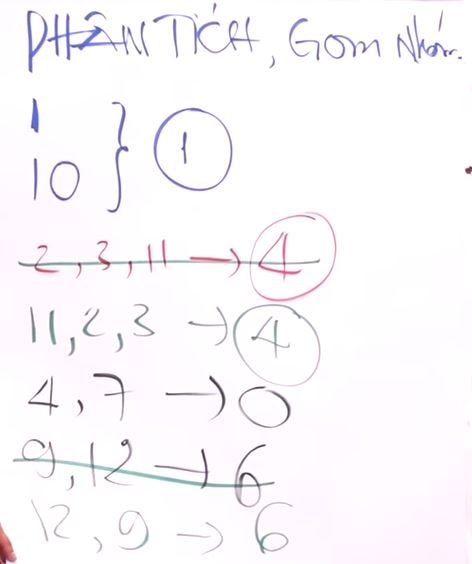 PHÂN TÍCH, Gom Nhóm.
1
10 } 1
2, 3, 11 → 4
11, 2, 3 → 4
4, 7 → 0
9, 12 → 6
12, 9 → 6